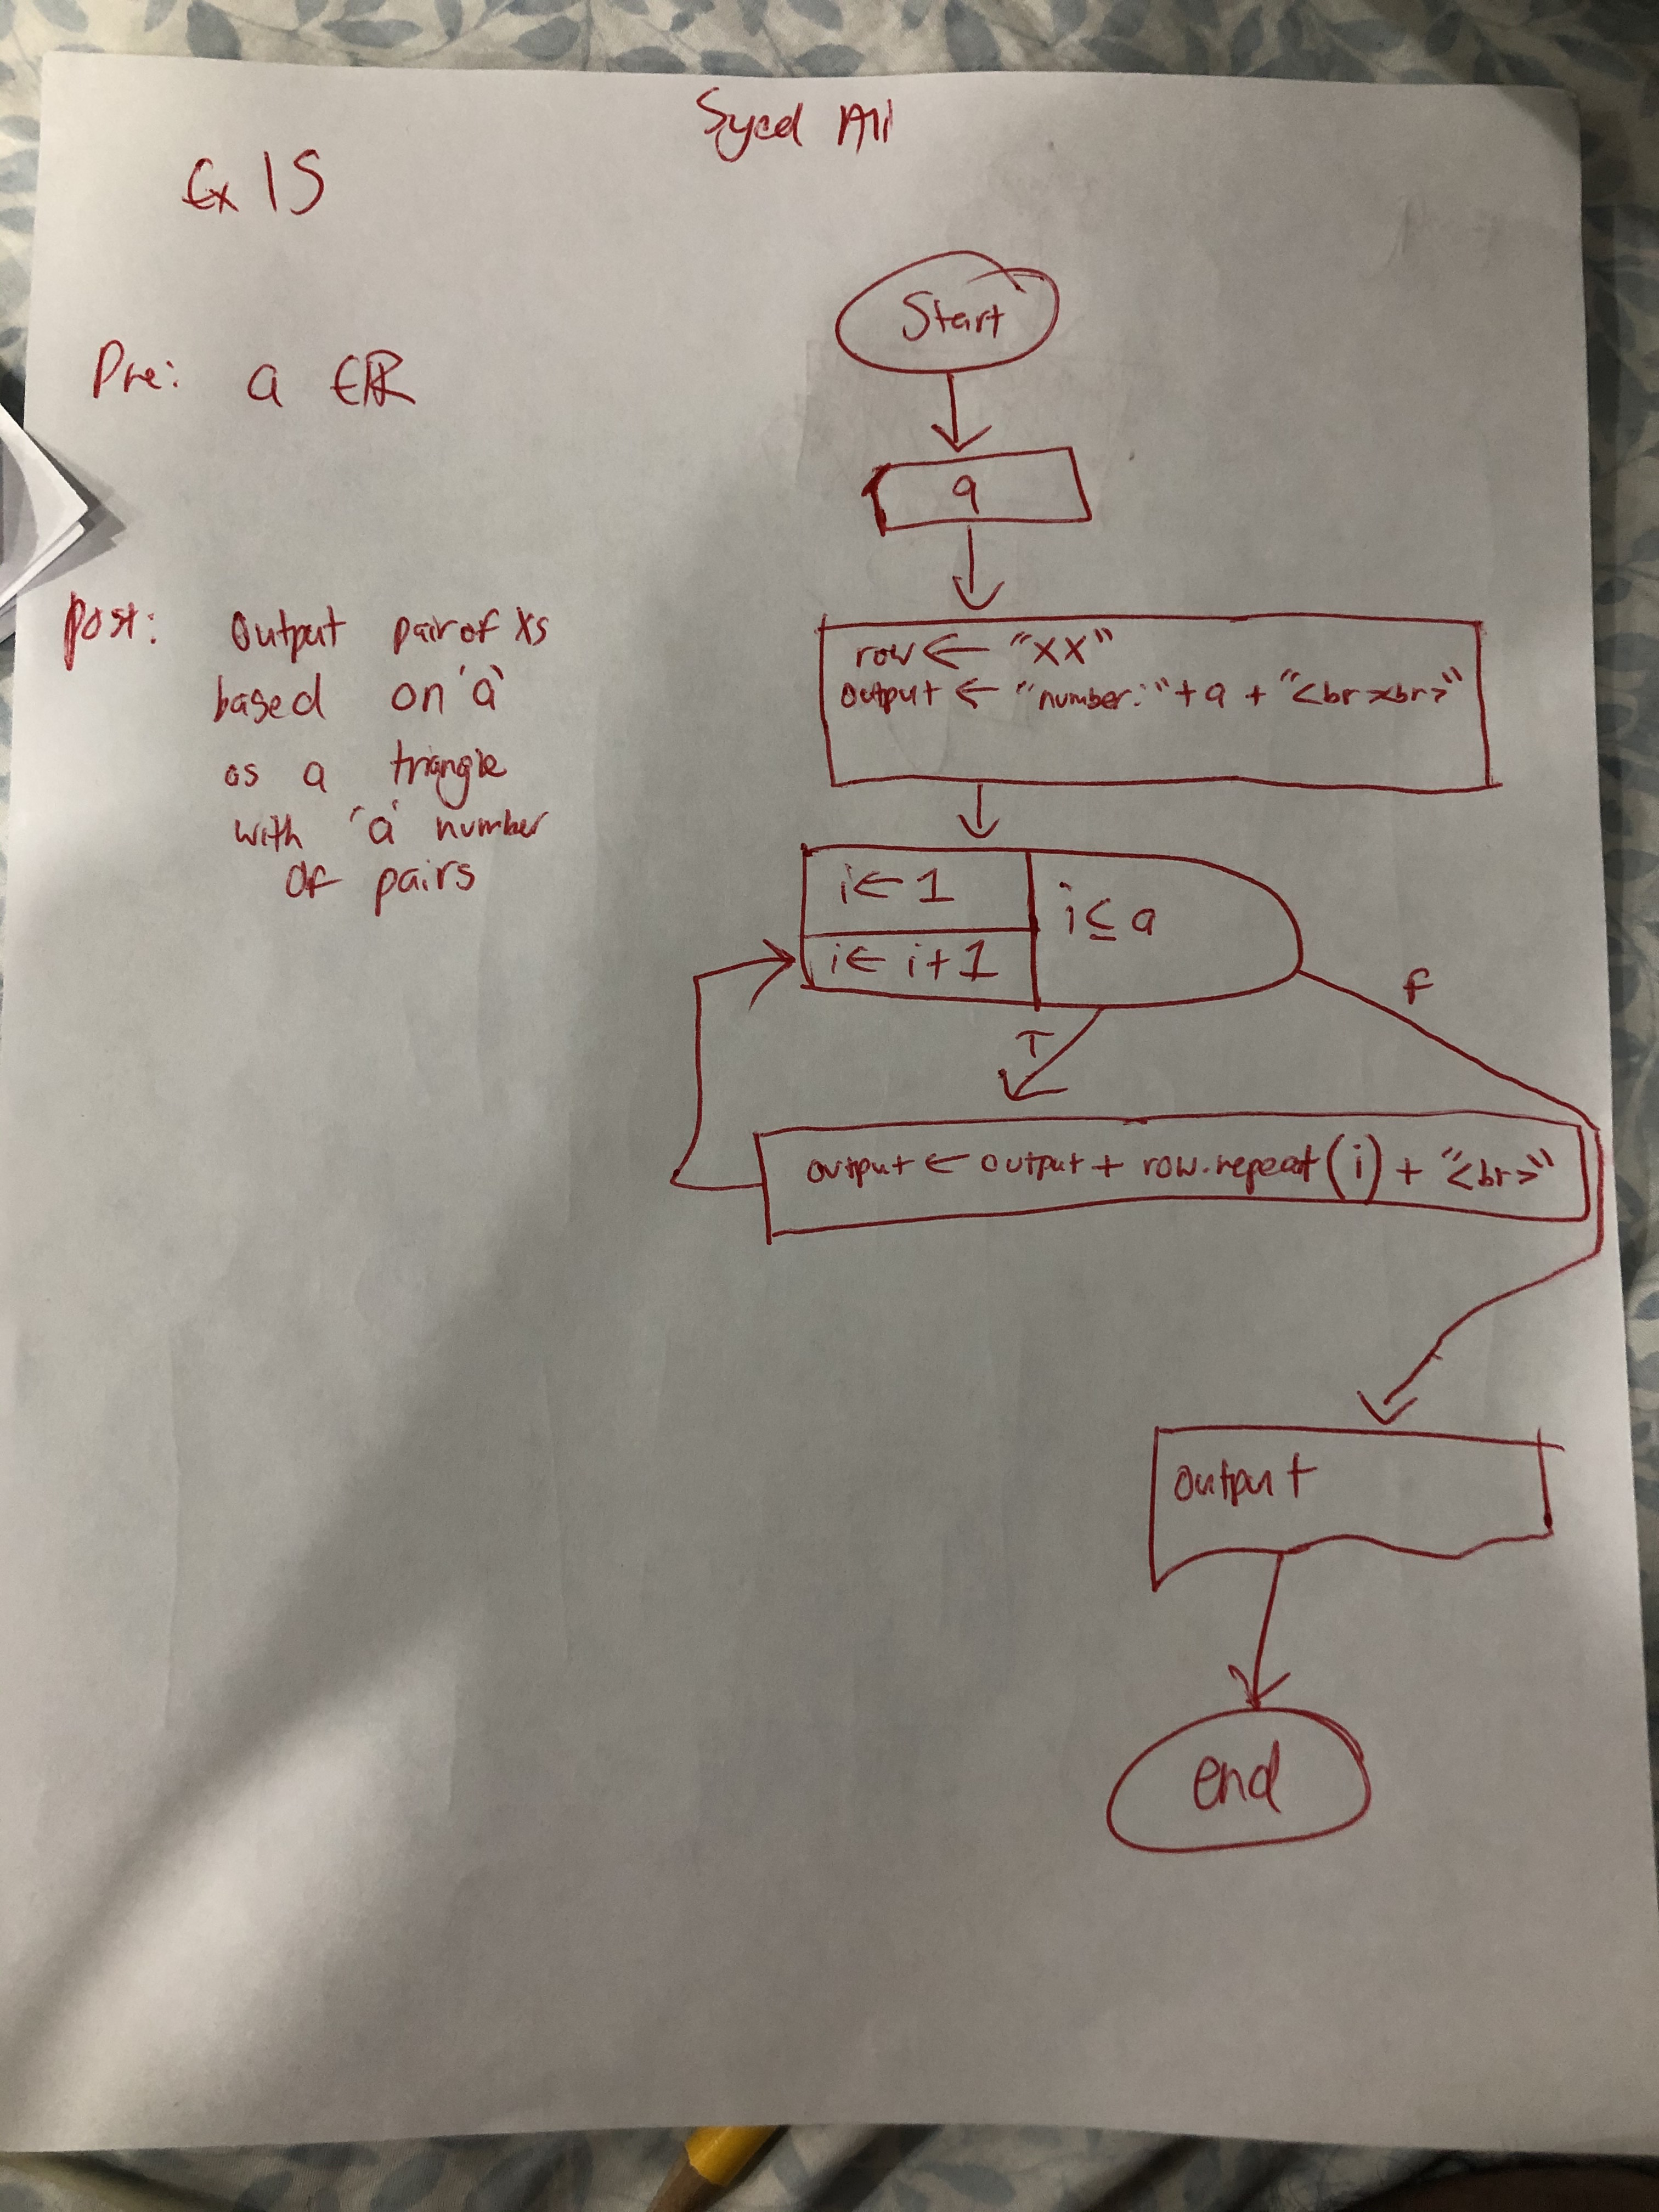 Syed Ali
Ex 15
Start
Pre: a ∈ ℝ
a
Post: Output pair of Xs
based on 'a'
as a triangle
with 'a' number
of pairs
row ← "XX"
output ← "number:" + a + "<br><br>"
i ← 1
i ≤ a
i ← i + 1
F
T
output ← output + row.repeat(i) + "<br>"
output
end